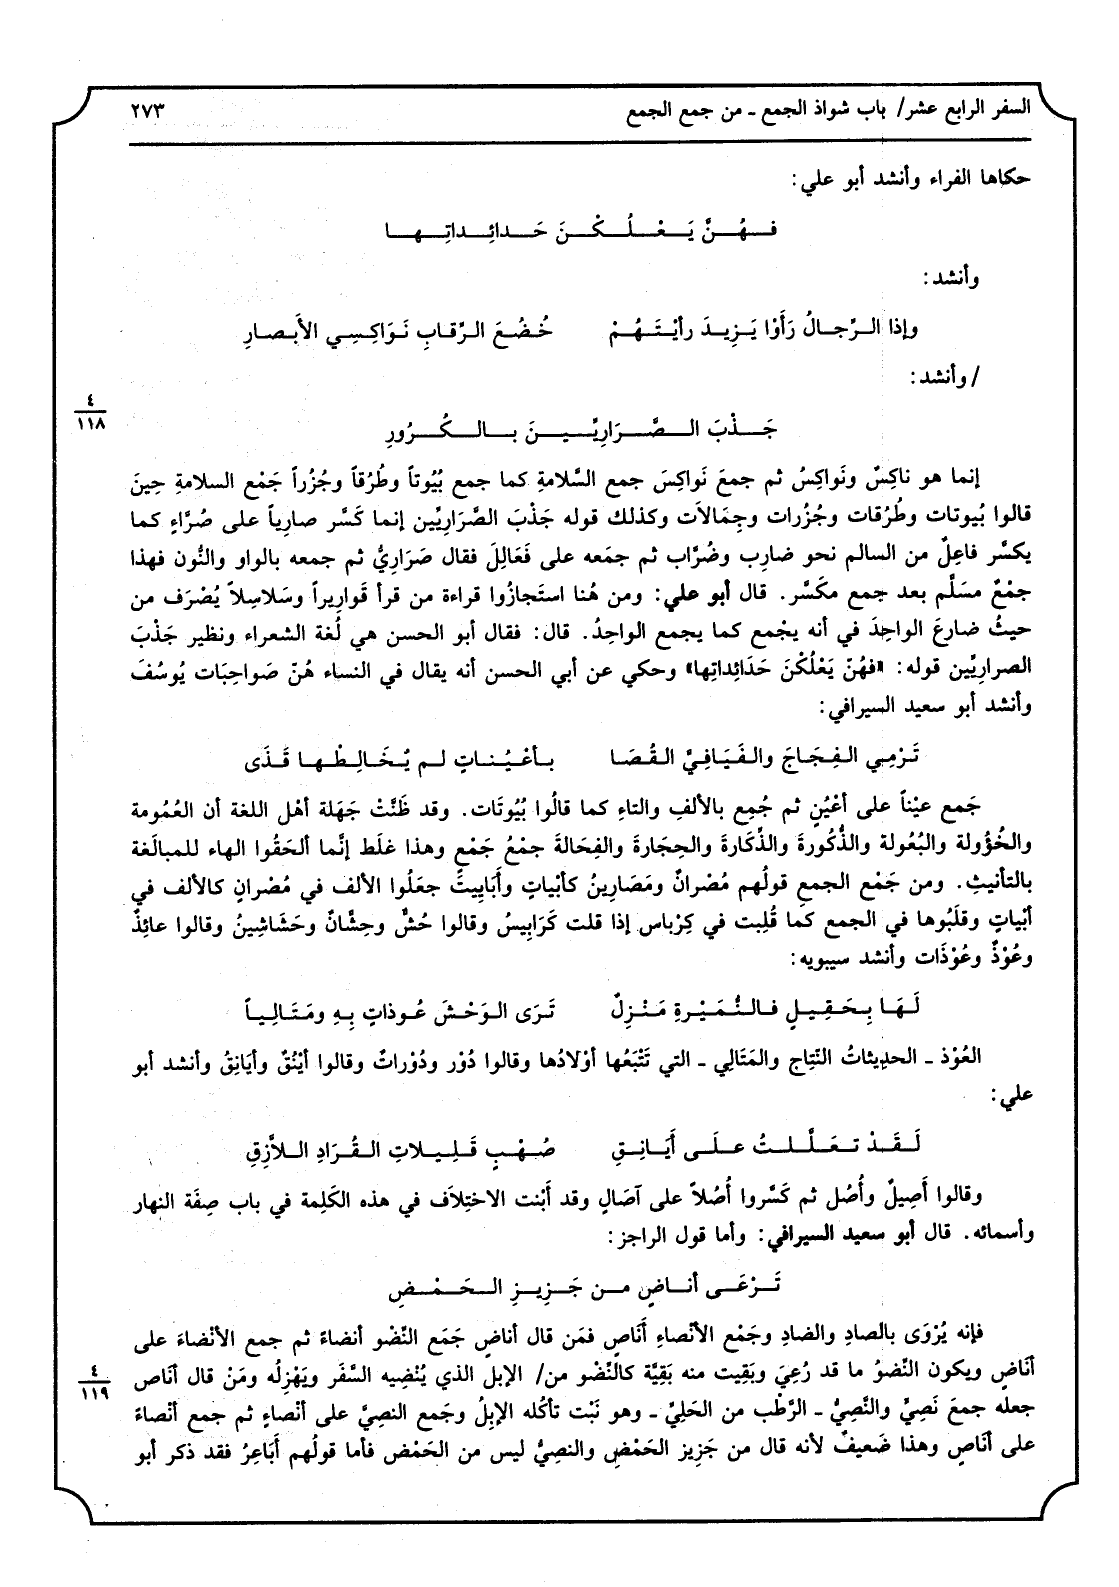 السفر الرابع عشر/ باب شواذ الجمع ـ من جمع الجمع ٢٧٣
حكاها الفراء وأنشد أبو علي:
فهُنَّ يَعْلُكْنَ حَدائِداتِها
وأنشد:
وإذا الرِّجالُ رَأَوْا يَزِيدَ رأيْتَهُمْ خُضُعَ الرِّقابِ نَوَاكِسِي الأَبْصارِ
/ وأنشد:
٤
١١٨
جَذْبَ الصَّرَارِيِّينَ بالكُرُورِ
إنما هو ناكِسٌ ونَواكِسُ ثم جمعَ نَواكِسَ جمع السَّلامةِ كما جمع بُيُوتاً وطُرُقاً وجُزُراً جَمْع السلامةِ حِينَ
قالوا بُيوتات وطُرُقات وجُزُرات وجِمَالاَت وكذلك قوله جَذْبَ الصَّرَارِيِّين إنما كَسَّر صارِياً على صُرَّاءٍ كما
يكسَّر فاعِلٌ من السالم نحو ضارِب وضُرَّاب ثم جمَعه على فَعَالِلَ فقال صَرَارِيُّ ثم جمعه بالواو والنُّون فهذا
جمْعٌ مسَلَّم بعد جمع مكَسَّر. قال أبو علي: ومن هُنا استَجازُوا قراءة من قرأ قَوارِيراً وسَلاسِلاً يُصْرَف من
حيثُ ضارعَ الواحِدَ في أنه يجْمع كما يجمع الواحِدُ. قال: فقال أبو الحسن هي لُغة الشعراء ونظير جَذْبَ
الصرارِيِّين قوله: «فهُنّ يَعْلُكْنَ حَدَائِداتِها» وحكي عن أبي الحسن أنه يقال في النساء هُنّ صَواحِبَات يُوسُفَ
وأنشد أبو سعيد السيرافي:
تَرْمِي الفِجَاجَ والفَيَافِيَّ القُصَا بأعْيُناتٍ لم يُخَالِطْها قَذَى
جَمع عيْناً على أعْيُنٍ ثم جُمِع بالألفِ والتاءِ كما قالُوا بُيُوتَات. وقد ظَنَّتْ جَهَلة أهْل اللغة أن العُمُومة
والخُؤُولة والبُعُولة والذُّكُورةَ والذِّكَارةَ والحِجَارةَ والفِحَالةَ جمْعُ جَمْعٍ وهذا غلَط إنَّما ألحَقُوا الهاء للمبالَغة
بالتأنيثِ. ومن جَمْع الجمعِ قولُهم مُصْرانٌ ومَصَارِينُ كأبْياتٍ وأَبَايِيتَ جعَلُوا الألف في مُصْرانٍ كالألف في
أبْياتٍ وقلَبُوها في الجمع كما قُلِبت في كِرْباس إذا قلت كَرَابِيسُ وقالوا حُشٌّ وحِشَّانٌ وحَشَاشِينُ وقالوا عائِذٌ
وعُوْذٌ وعُوْذَات وأنشد سيبويه:
لَهَا بِحَقِيلٍ فالنُّمَيْرةِ مَنْزِلٌ تَرَى الوَحْشَ عُوذاتٍ بِهِ ومَتَالِياً
العُوْذ ـ الحديثاتُ النِّتاج والمَتَالِي ـ التي تَتْبَعُها أوْلادُها وقالوا دُوْر ودُوْراتٌ وقالوا أيْنُقٌ وأيَانِقُ وأنشد أبو
علي:
لَقَدْ تعَلَّلتُ علَى أَيَانِقِ صُهْبٍ قَلِيلاتِ القُرَادِ اللاَّزِقِ
وقالوا أَصِيلٌ وأُصُل ثم كَسَّروا أُصُلاً على آصَالٍ وقد أبَنت الاختِلاَف في هذه الكَلِمة في باب صِفَة النهار
وأسمائه. قال أبو سعيد السيرافي: وأما قول الراجز:
تَرْعَى أناضٍ من جَزِيزِ الحَمْضِ
فإنه يُرْوَى بالصادِ والضادِ وجَمْع الأنْصاءِ أَنَاصٍ فمَن قال أناضٍ جَمَع النِّضْو أنضاءً ثم جمع الأنْضاءَ على
أنَاضٍ ويكون النِّضوُ ما قد رُعِيَ وبَقِيت منه بَقِيَّة كالنِّضْو من/ الإبل الذي يُنْضِيه السَّفَر ويَهْزِلُه ومَنْ قال أنَاص
٤
١١٩
جعله جمعَ نَصِيٍّ والنَّصِيُّ ـ الرَّطْب من الحَلِيِّ ـ وهو نَبْت تأكُله الإبِلُ وجَمع النصِيَّ على أنْصاءٍ ثم جمع أنْصاءً
على أنَاصٍ وهذا ضَعيفٌ لأنه قال من جَزِيز الحَمْضِ والنصِيُّ ليس من الحَمْض فأما قولُهم أَبَاعِرُ فقد ذكر أبو